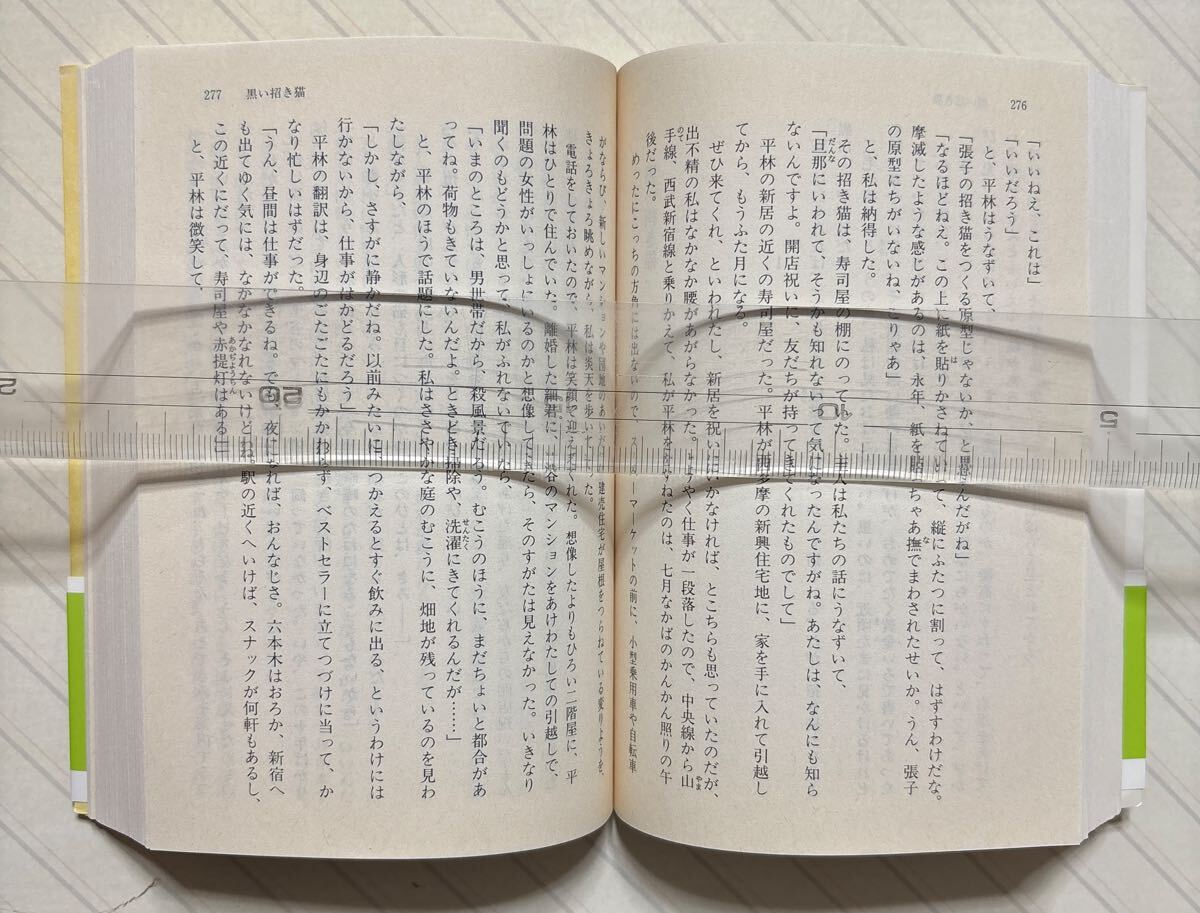 276
「いいねえ、これは」
「いいだろう」
と、平林はうなずいて、
「張子の招き猫をつくる原型じゃないか、と思んだがね」
「なるほどねえ。この上に紙を貼りかさねていって、縦にふたつに割って、はずすわけだな。
摩滅したような感じがあるのは、永年、紙を貼っちゃあ撫でまわされたせいか。うん、張子
の原型にちがいないね、こりゃあ」
と、私は納得した。
その招き猫は、寿司屋の棚にのっていた。主人は私たちの話にうなずいて、
「旦那にいわれて、そうかも知れないって気になったんですがね。あたしは、なんにも知ら
ないんですよ。開店祝いに、友だちが持ってきてくれたものでして」
平林の新居の近くの寿司屋だった。平林が西多摩の新興住宅地に、家を手に入れて引越し
てから、もうふた月になる。
ぜひ来てくれ、といわれたし、新居を祝いにいかなければ、とこちらも思っていたのだが、
出不精の私はなかなか腰があがらなかった。ようやく仕事が一段落したので、中央線から山
手線、西武新宿線と乗りかえて、私が平林をたずねたのは、七月なかばのかんかん照りの午
後だった。
めったにこっちの方角には出ないので、スーパーマーケットの前に、小型乗用車や自転車
277 黒い招き猫
がならび、新しいマンションや団地のあいだに、建売住宅が屋根をつらねている変りようを、
きょろきょろ眺めながら、私は炎天を歩いていった。
電話をしておいたので、平林は笑顔で迎えてくれた。想像したよりもひろい二階屋に、平
林はひとりで住んでいた。離婚した細君に、谷のマンションをあけわたしての引越しで、
問題の女性がいっしょにいるのかと想像してきたら、そのすがたは見えなかった。いきなり
聞くのもどうかと思って、私がふれないでいたら、
「いまのところは、男世帯だから、殺風景だろう。むこうのほうに、まだちょいと都合があ
ってね。荷物もきていないんだよ。ときどき掃除や、洗濯にきてくれるんだが……」
と、平林のほうで話題にした。私はささやかな庭のむこうに、畑地が残っているのを見わ
たしながら、
「しかし、さすがに静かだね。以前みたいに、つかえるとすぐ飲みに出る、というわけには
行かないから、仕事がはかどるだろう」
平林の翻訳は、身辺のごたごたにもかかわらず、ベストセラーに立てつづけに当って、か
なり忙しいはずだった。
「うん、昼間は仕事ができるね。でも、夜になれば、おんなじさ。六本木はおろか、新宿へ
も出てゆく気には、なかなかなれないけどね。駅の近くへいけば、スナックが何軒もあるし、
この近くにだって、寿司屋や赤提灯はある」
と、平林は微笑して、